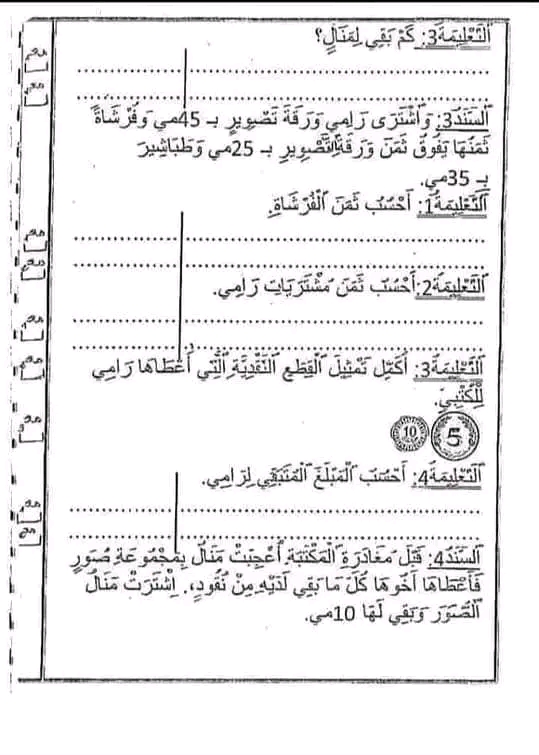 اَلتَّعْلِيمَةُ3: كَمْ بَقِيَ لِمَنَالٍ؟
اَلسَّنَدُ3: وَاشْتَرَى رَامِي وَرَقَةَ تَصْوِيرٍ بـ 45مي وَفُرْشَاةً
ثَمَنُهَا يَفُوقُ ثَمَنَ وَرَقَةِ التَّصْوِيرِ بـ 25مي وَطَبَاشِيرَ
بـ 35مي.
اَلتَّعْلِيمَةُ1: أَحْسُبُ ثَمَنَ الْفُرْشَاةِ.
اَلتَّعْلِيمَةُ2: أَحْسُبُ ثَمَنَ مُشْتَرَيَاتِ رَامِي.
اَلتَّعْلِيمَةُ3: أُكَمِّلُ تَمْثِيلَ الْقِطَعِ النَّقْدِيَّةِ الَّتِي أَعْطَاهَا رَامِي
لِلْكُتْبِيِّ.
10 5
اَلتَّعْلِيمَةُ4: أَحْسُبُ الْمَبْلَغَ الْمُتَبَقِّي لِرَامِي.
اَلسَّنَدُ4: قَبْلَ مُغَادَرَةِ الْمَكْتَبَةِ أَعْجِبَتْ مَنَالُ بِمَجْمُوعَةِ صُوَرٍ
فَأَعْطَاهَا أَخُوهَا كُلَّ مَا بَقِيَ لَدَيْهِ مِنْ نُقُودٍ،. اِشْتَرَتْ مَنَالُ
الصُّوَرَ وَبَقِيَ لَهَا 10مي.